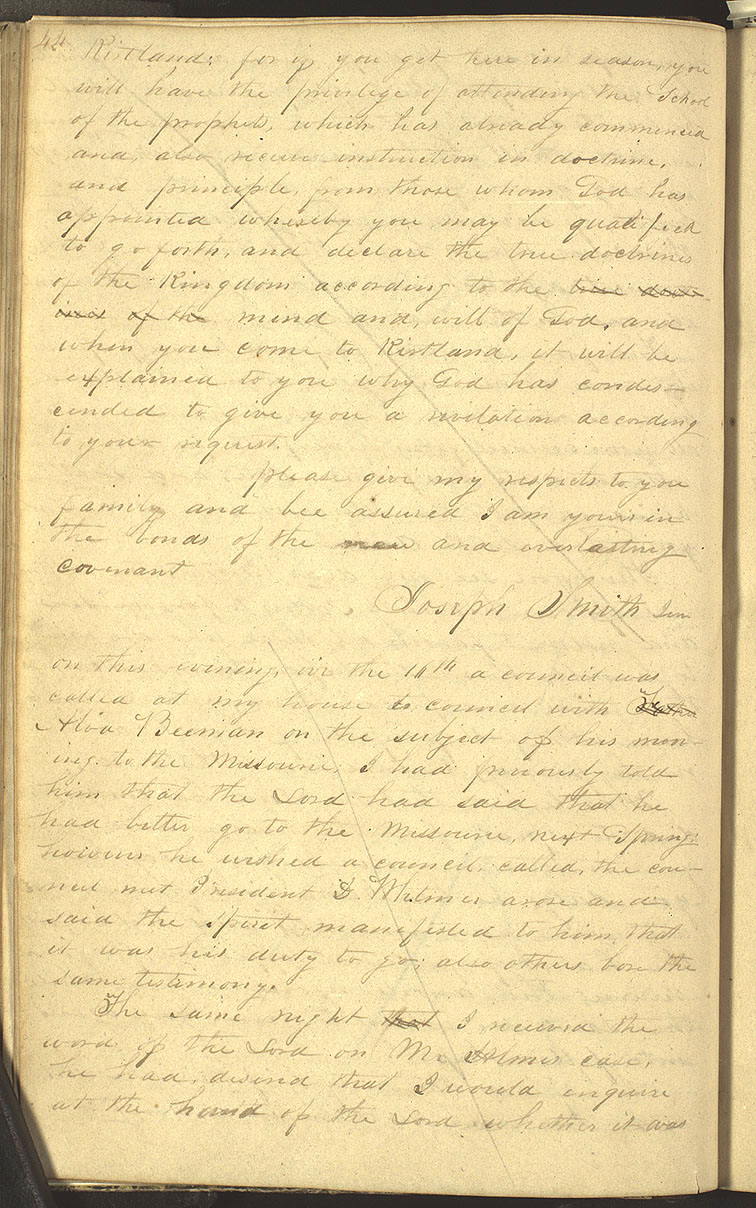 44
Kirtland; for if you get here in season, you
will have the privilege of attending the School
of the prophets, which has already commenced
and, also recieve instruction in doctrine,
and principle, from those whom God has
appointed whereby you may be qualified
to go forth, and declare the true doctrines
of the Kingdom according to the true doct-
ines of the mind and, will of God, and
when you come to Kirtland, it will be
explained to you why God has condes-
cended to give you a revelation according
to your request.
please give my respects to you
family, and bee assured I am yours in
the bonds of the new and everlasting
covenant
Joseph Smith Jun
on this evening, viz the 14th a council was
called at my house to council with
Alva Beeman on the subject of his mov-
ing to the Missourie; I had previously told
him that the Lord had said that he
had better go to the Missourie, next Spring:
however he wished a council, called, the cou-
ncil met President D. Witmer arose and
said the Spirit manifested to him that
it was his duty to go; also others bore the
same testimony.
The same night that I received the
word of the Lord on Mr. Holmes case,
he had desired that I would inquire
at the hand of the Lord whether it was